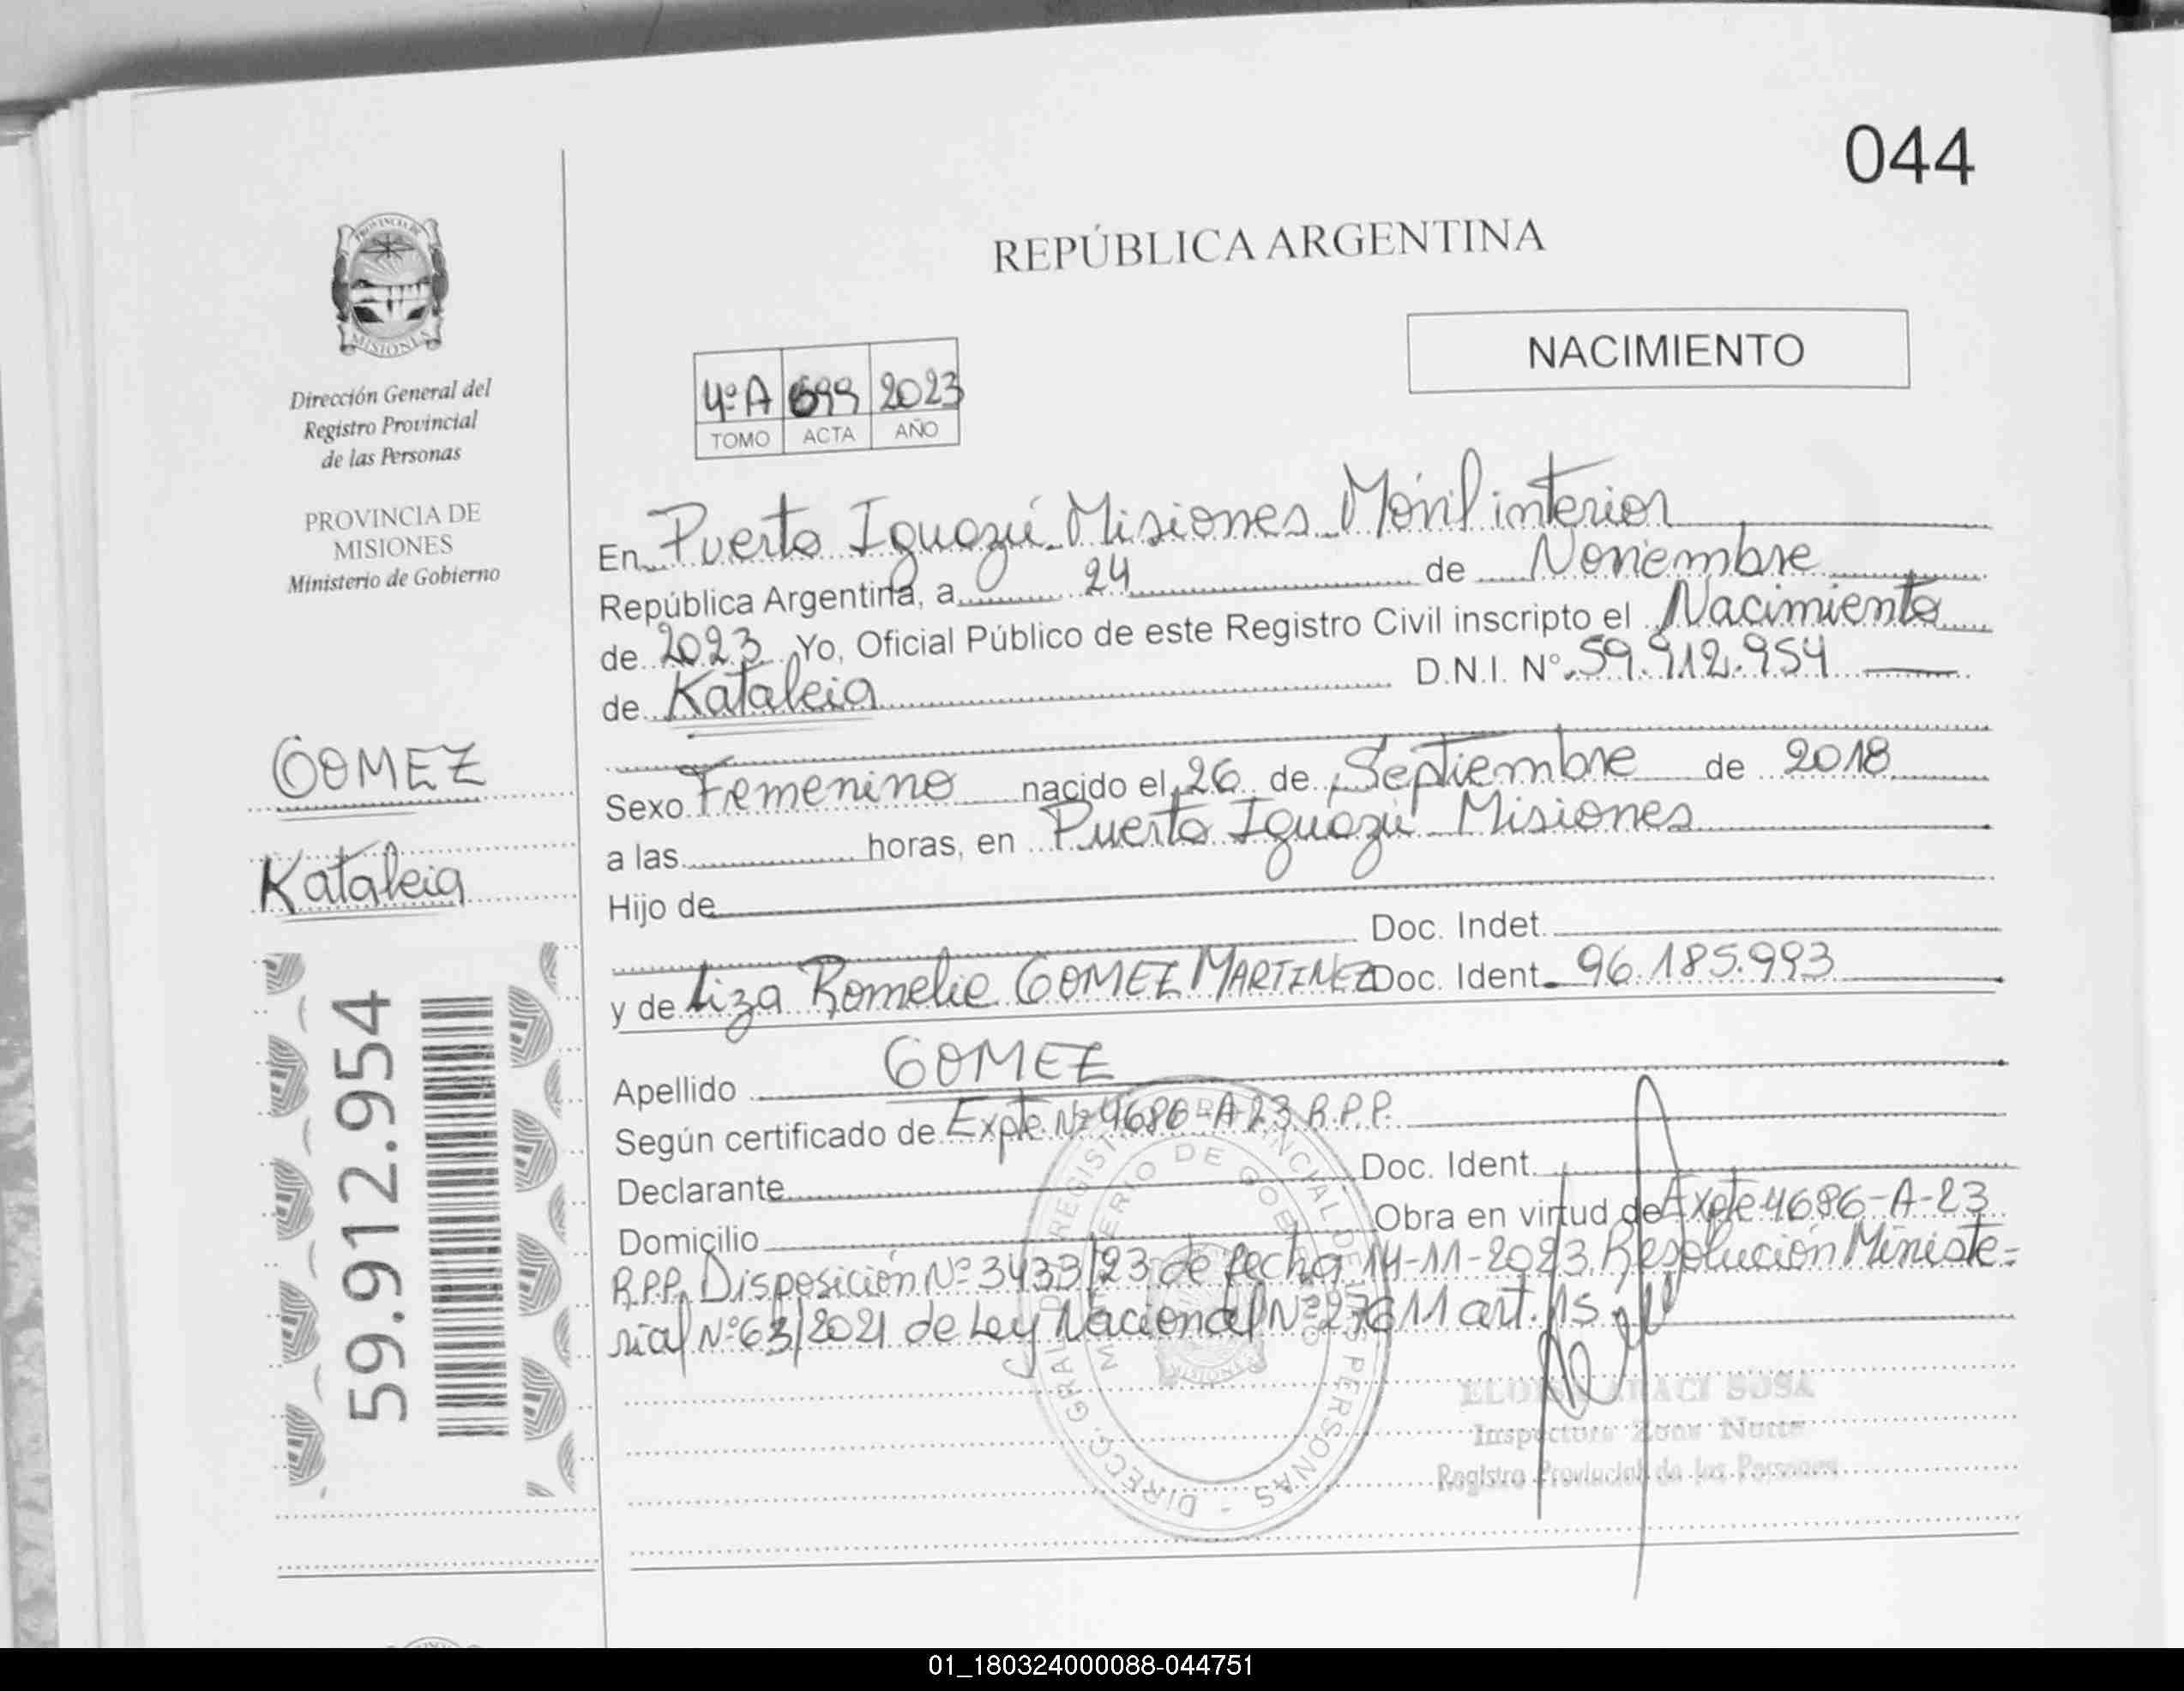 044
REPÚBLICA ARGENTINA
NACIMIENTO
PROVINCIA DE
MISIONES
Dirección General del
Registro Provincial
de las Personas
PROVINCIA DE
MISIONES
Ministerio de Gobierno
GOMEZ
Kataleia
59.912.954
4º A 699 2023
TOMO ACTA AÑO
En Puerto Iguazú Misiones Móvil interior
República Argentina, a 24 de Noviembre
de 2023 Yo, Oficial Público de este Registro Civil inscripto el Nacimiento
de Kataleia D.N.I. Nº 59.912.954
Sexo Femenino nacido el 26 de Septiembre de 2018
a las horas, en Puerto Iguazú Misiones
Hijo de
Doc. Indet.
y de Liza Romelie GOMEZ MARTINEZ Doc. Ident. 96.185.993
Apellido GOMEZ
Según certificado de Expte Nº 4686-A-23 R.P.P.
Declarante Doc. Ident.
Domicilio Obra en virtud de Expte 4686-A-23
R.P.P. Disposición Nº 3433/23 de fecha 14-11-2023. Resolución Ministe=
rial Nº 63/2021 de Ley Nacional Nº 27611 art. 15.
DIRECC. GRAL. DEL REGISTRO PROVINCIAL DE LAS PERSONAS -
MINISTERIO DE GOBIERNO
MISIONES
ARACI SOSA
Inspectora Zona Norte
Registro Provincial de las Personas
01_180324000088-044751